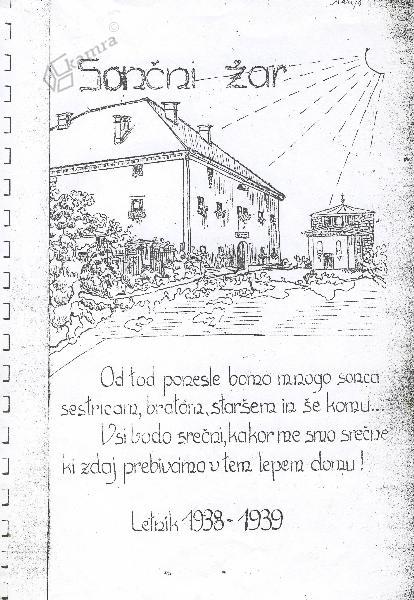 kamra
Sončni žar
Od tod ponesle bomo mnogo sonca
sestricam, bratom, staršem in še komu...
Vsi bodo srečni, kakor me smo srečne
ki zdaj prebivamo v tem lepem domu!
Letnik 1938-1939